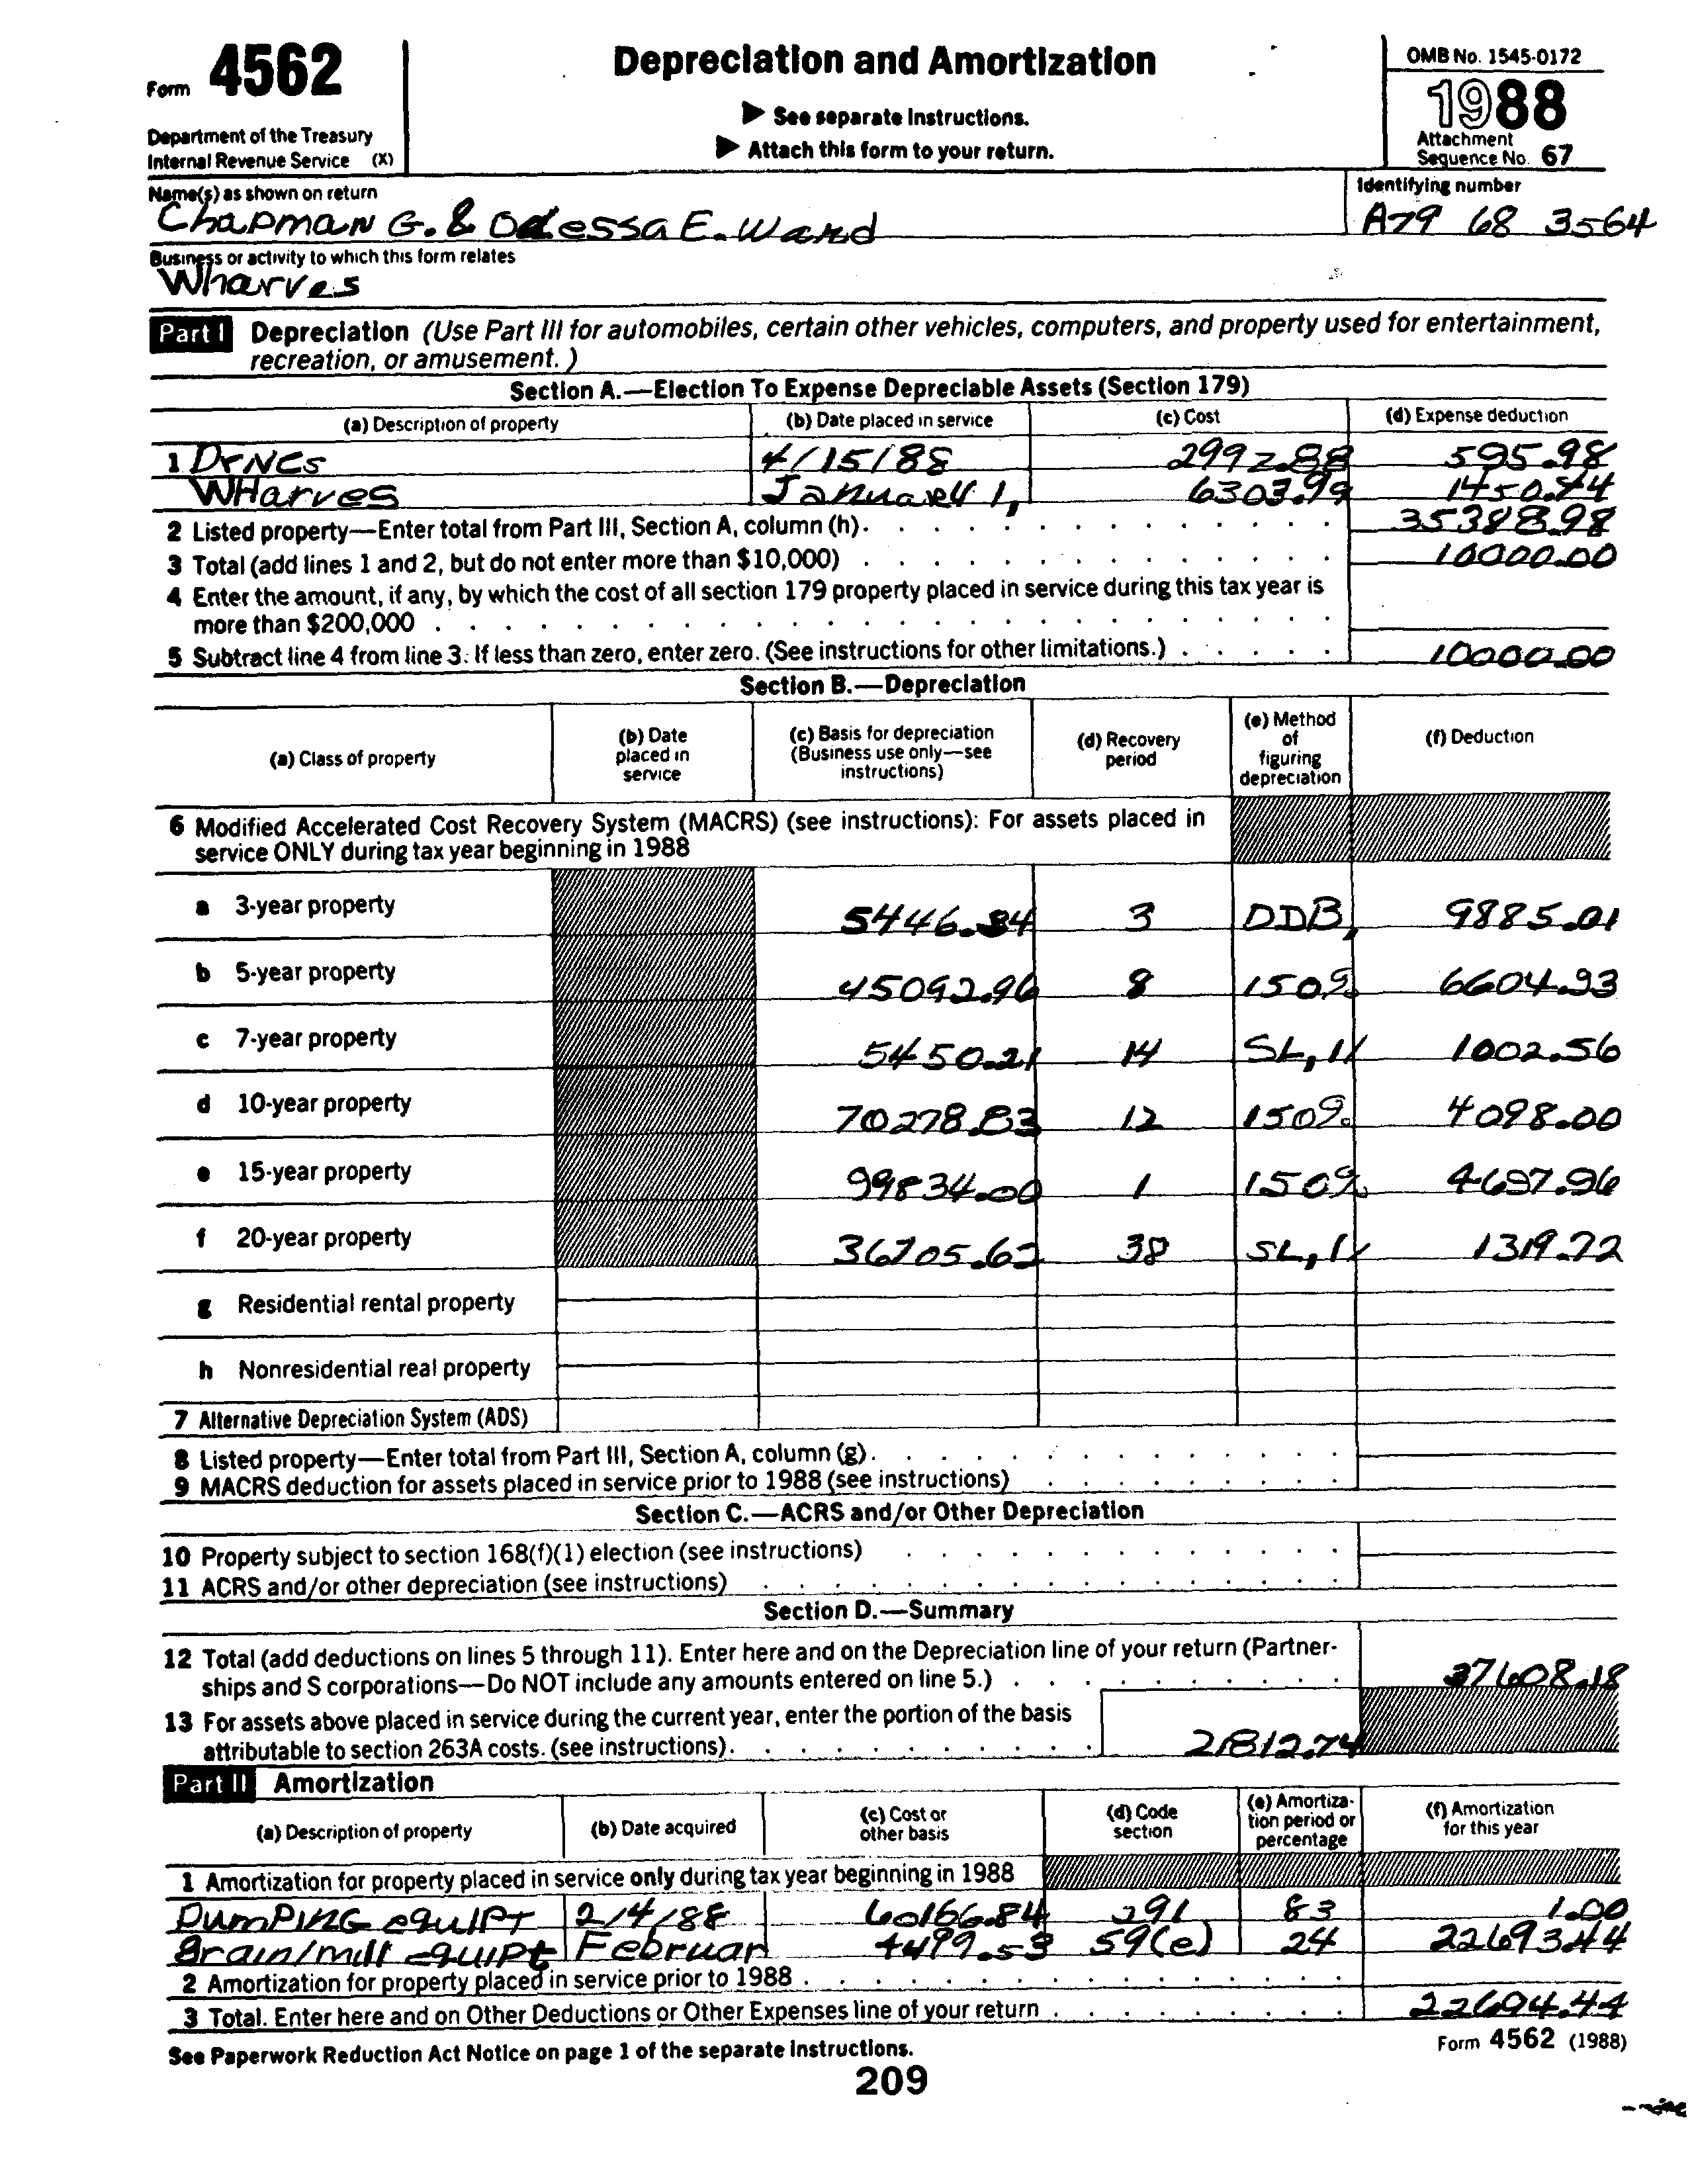 Form 4562
Depreciation and Amortization
OMB No. 1545-0172
1988
▶ See separate instructions.
▶ Attach this form to your return.
Department of the Treasury
Internal Revenue Service (X)
Attachment
Sequence No. 67
Name(s) as shown on return
Identifying number
Chapman G. & Odessa E. Ward
A79 68 3564
Business or activity to which this form relates
Wharves
Part I Depreciation (Use Part III for automobiles, certain other vehicles, computers, and property used for entertainment,
recreation, or amusement.)
Section A.—Election To Expense Depreciable Assets (Section 179)
(a) Description of property (b) Date placed in service (c) Cost (d) Expense deduction
1 DrNCs 4/15/88 2992.88 595.98
WHarves January 1, 6303.99
2 Listed property—Enter total from Part III, Section A, column (h). 35388.98
3 Total (add lines 1 and 2, but do not enter more than $10,000) 10000.00
4 Enter the amount, if any, by which the cost of all section 179 property placed in service during this tax year is
more than $200,000
5 Subtract line 4 from line 3. If less than zero, enter zero. (See instructions for other limitations.) 10000.00
Section B.—Depreciation
(a) Class of property (b) Date placed in service (c) Basis for depreciation (Business use only—see instructions) (d) Recovery period (e) Method of figuring depreciation (f) Deduction
6 Modified Accelerated Cost Recovery System (MACRS) (see instructions): For assets placed in
service ONLY during tax year beginning in 1988
a 3-year property 5446.84 3 DDB, 9885.01
b 5-year property 45092.96 8 150% 6604.93
c 7-year property 5450.21 14 SL, 1002.56
d 10-year property 70278.83 12 150% 4098.00
e 15-year property 99834.00 1 150% 4697.96
f 20-year property 36705.62 38 SL, 1319.72
g Residential rental property
h Nonresidential real property
7 Alternative Depreciation System (ADS)
8 Listed property—Enter total from Part III, Section A, column (g).
9 MACRS deduction for assets placed in service prior to 1988 (see instructions)
Section C.—ACRS and/or Other Depreciation
10 Property subject to section 168(f)(1) election (see instructions)
11 ACRS and/or other depreciation (see instructions)
Section D.—Summary
12 Total (add deductions on lines 5 through 11). Enter here and on the Depreciation line of your return (Partner-
ships and S corporations—Do NOT include any amounts entered on line 5.) 37608.18
13 For assets above placed in service during the current year, enter the portion of the basis
attributable to section 263A costs. (see instructions). 21812.74
Part II Amortization
(a) Description of property (b) Date acquired (c) Cost or other basis (d) Code section (e) Amortization period or percentage (f) Amortization for this year
1 Amortization for property placed in service only during tax year beginning in 1988
PumPING equIPT 2/4/88 60166.84 291 83 1.00
Grain/mill equIPt Februar 4499.53 59(e) 24 22693.44
2 Amortization for property placed in service prior to 1988
3 Total. Enter here and on Other Deductions or Other Expenses line of your return 22694.44
See Paperwork Reduction Act Notice on page 1 of the separate instructions.
Form 4562 (1988)
209